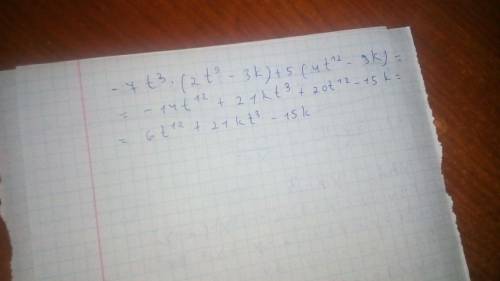 - 7 t³ · (2 t⁹ - 3k) + 5 · (4t¹² - 3k) =
= - 14t¹² + 21kt³ + 20t¹² - 15k =
= 6t¹² + 21kt³ - 15k